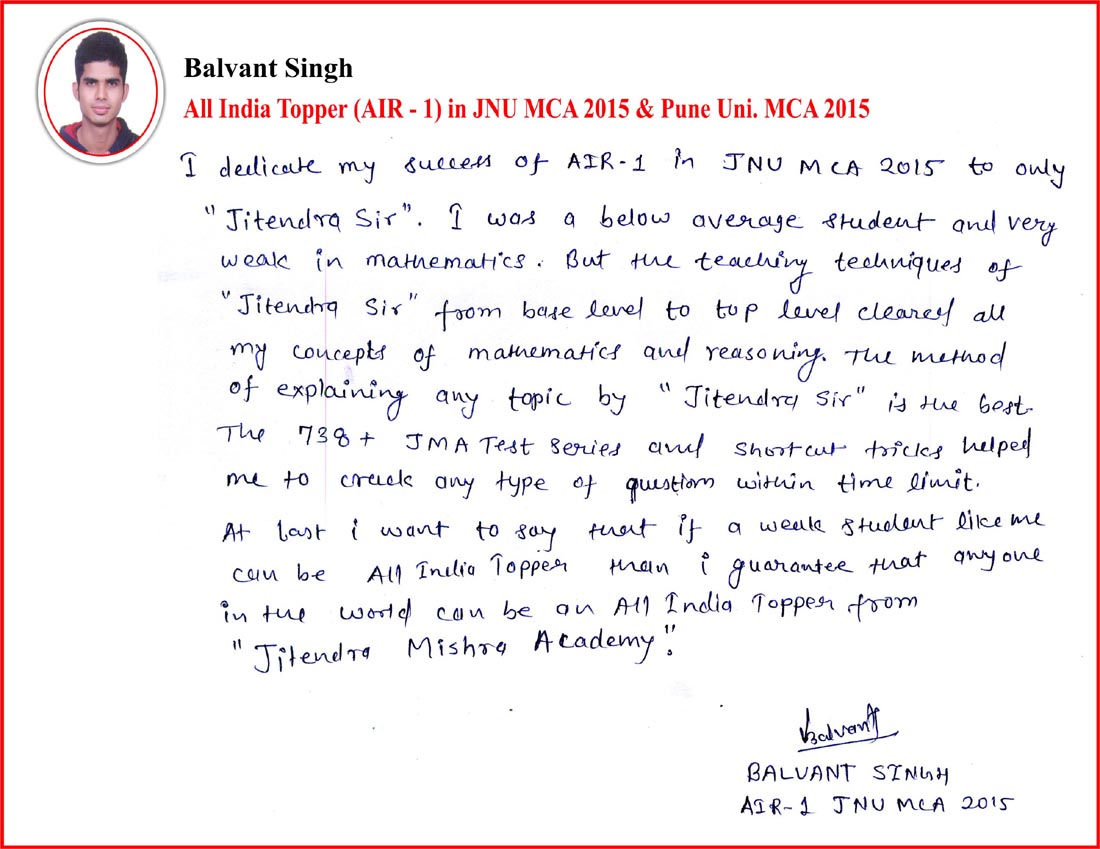 Balvant Singh
All India Topper (AIR - 1) in JNU MCA 2015 & Pune Uni. MCA 2015
I dedicate my success of AIR-1 in JNU MCA 2015 to only
"Jitendra Sir". I was a below average student and very
weak in mathematics. But the teaching techniques of
"Jitendra Sir" from base level to top level cleared all
my concepts of mathematics and reasoning. The method
of explaining any topic by "Jitendra Sir" is the best.
The 738+ JMA Test Series and shortcut tricks helped
me to crack any type of question within time limit.
At last i want to say that if a weak student like me
can be All India Topper than i guarantee that anyone
in the world can be an All India Topper from
"Jitendra Mishra Academy".
Balvant
BALVANT SINGH
AIR-1 JNU MCA 2015